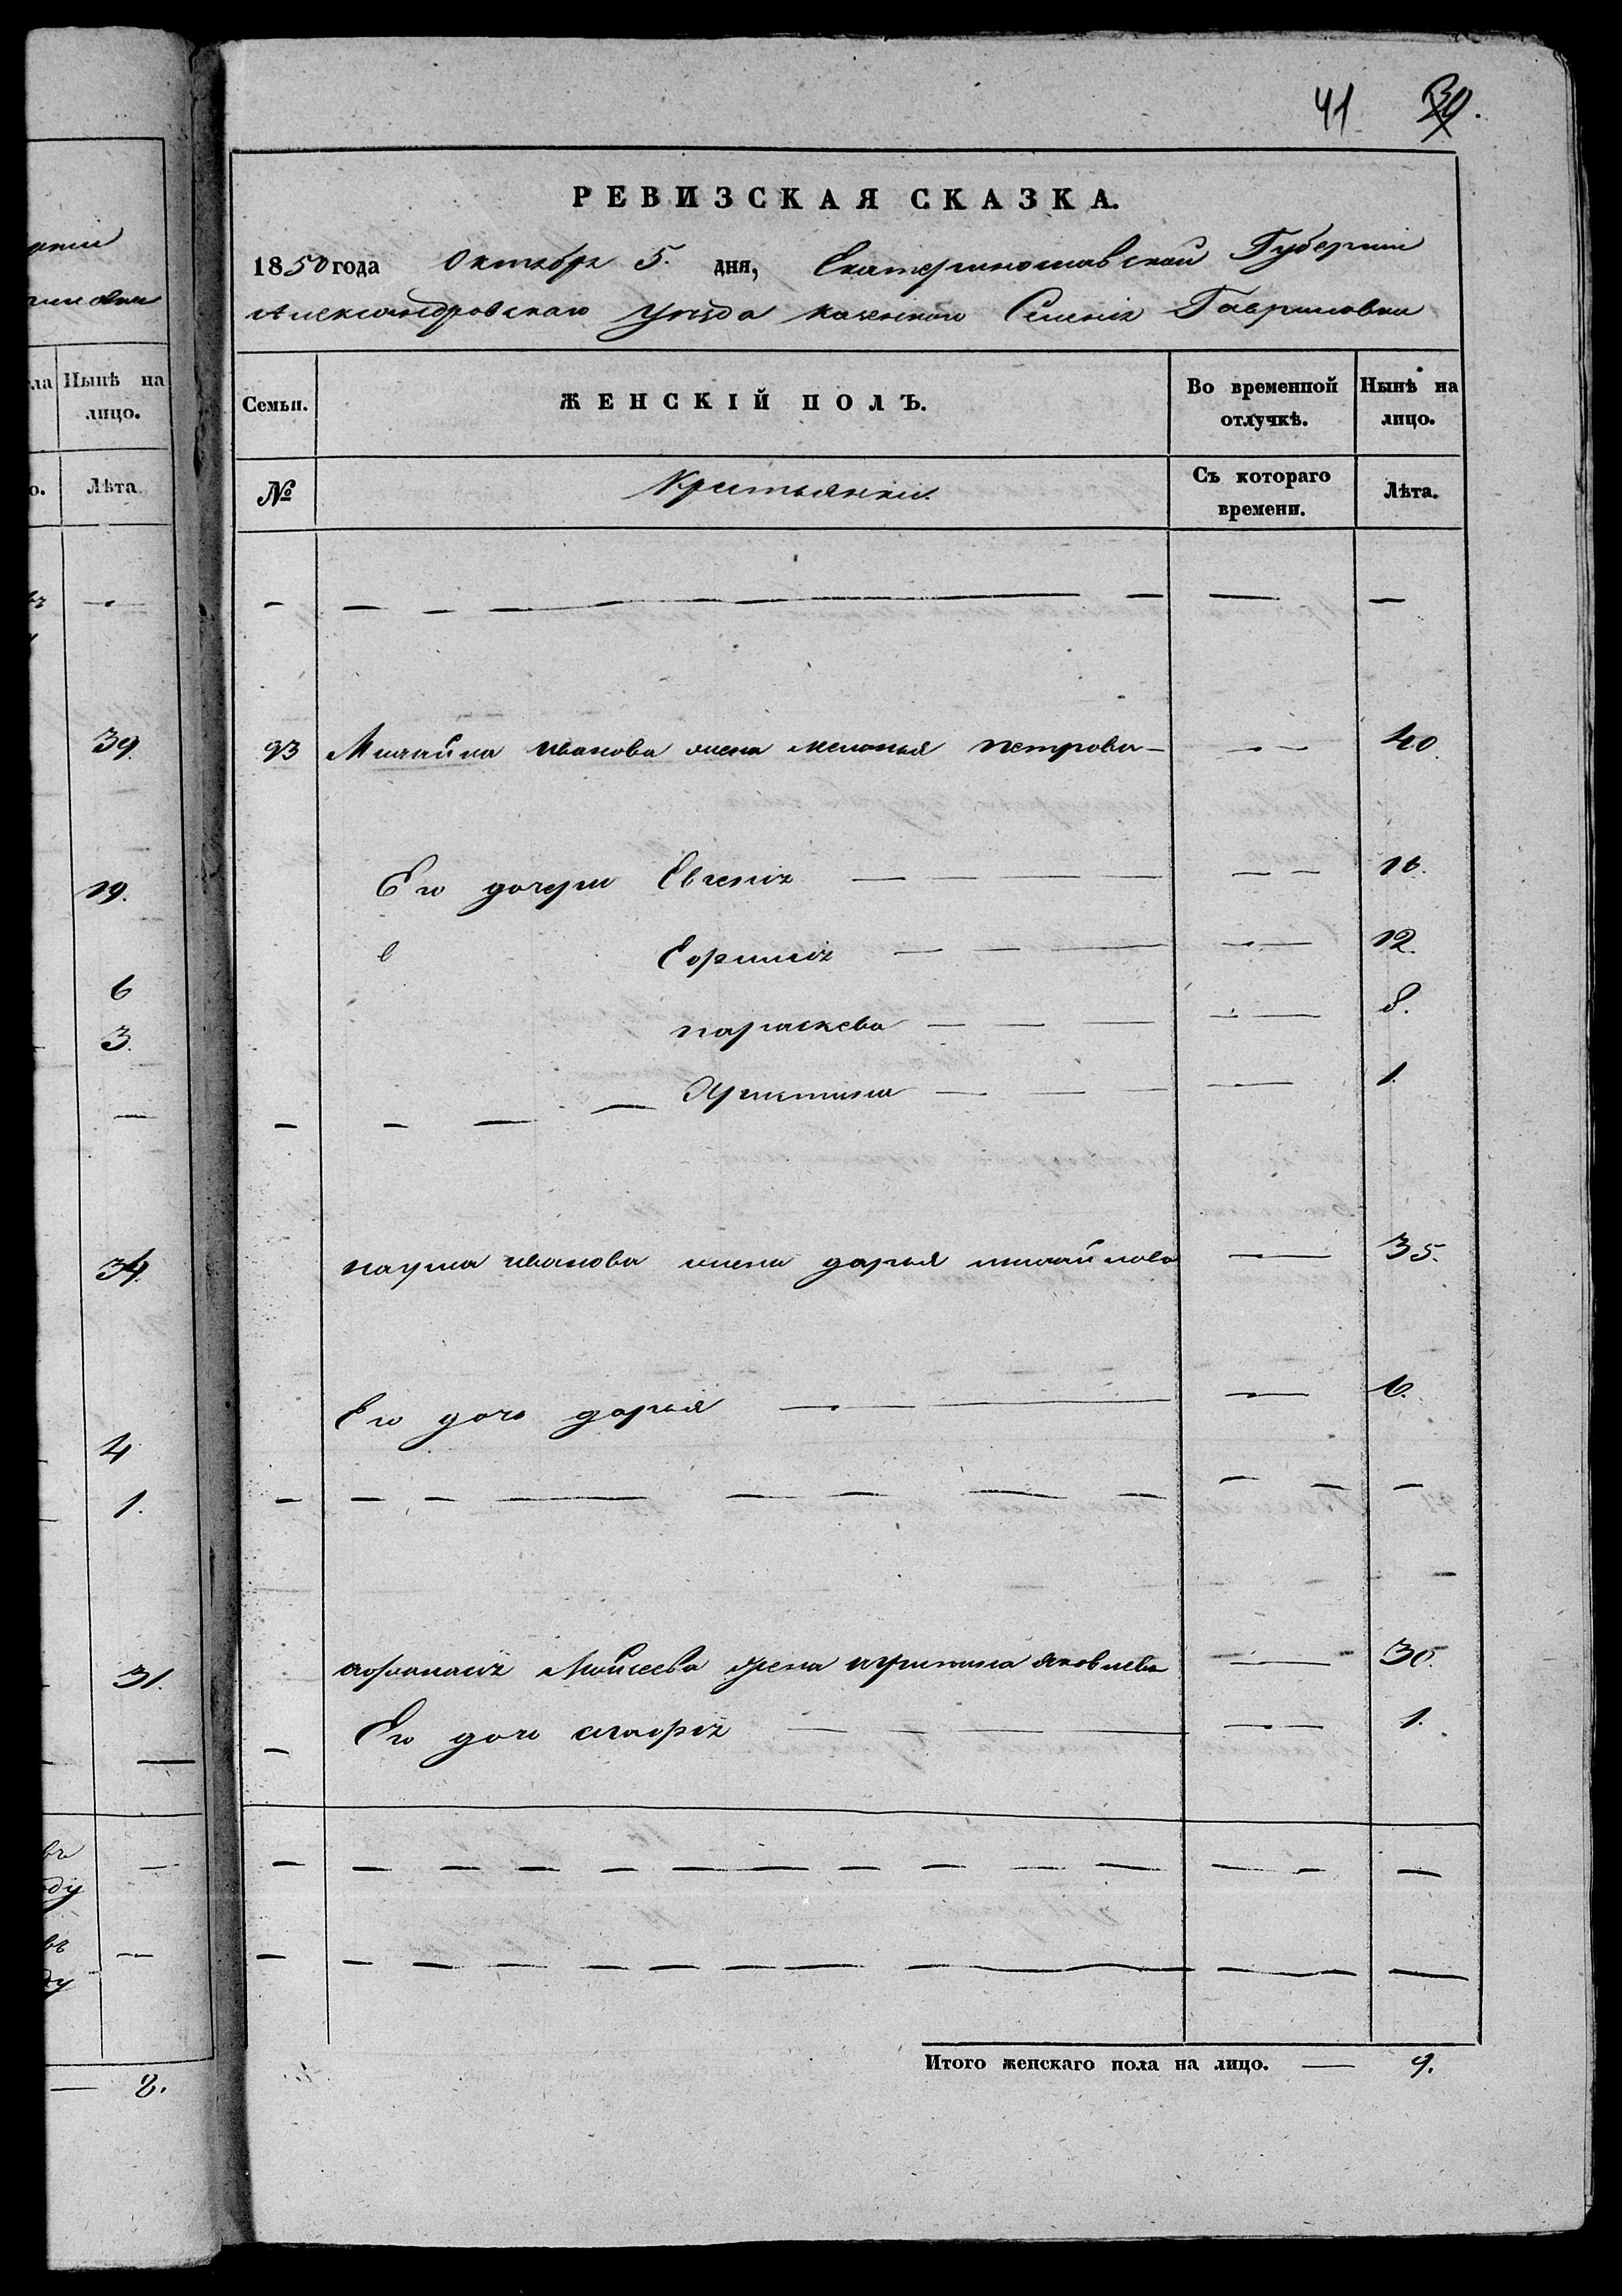 41 39.
РЕВИЗСКАЯ СКАЗКА.
1850 года Октября 5. дня, Екатеринославской Губерніи
Александровскаго Уѣзда казенного Селенія Гавриловки
Семьи. ЖЕНСКІЙ ПОЛЪ. Во временной отлучкѣ. Нынѣ на лицо.
№ Крестьянки. Съ котораго времени. Лѣта.
93 Михайла иванова жена меланья петрова 40.
Его дочери Евгенія 16.
Ефимія 12.
параскева 8.
Христина 1.
наума иванова жена дарья михайлова 35.
Его дочь дарья 6.
афанасія Мойсеева жена христина яковлева 30.
Его дочь 1.
Итого женскаго пола на лицо. 9.
Нынѣ на
лицо.
Лѣта
39.
19.
6
3.
34.
4
1.
31.
8.